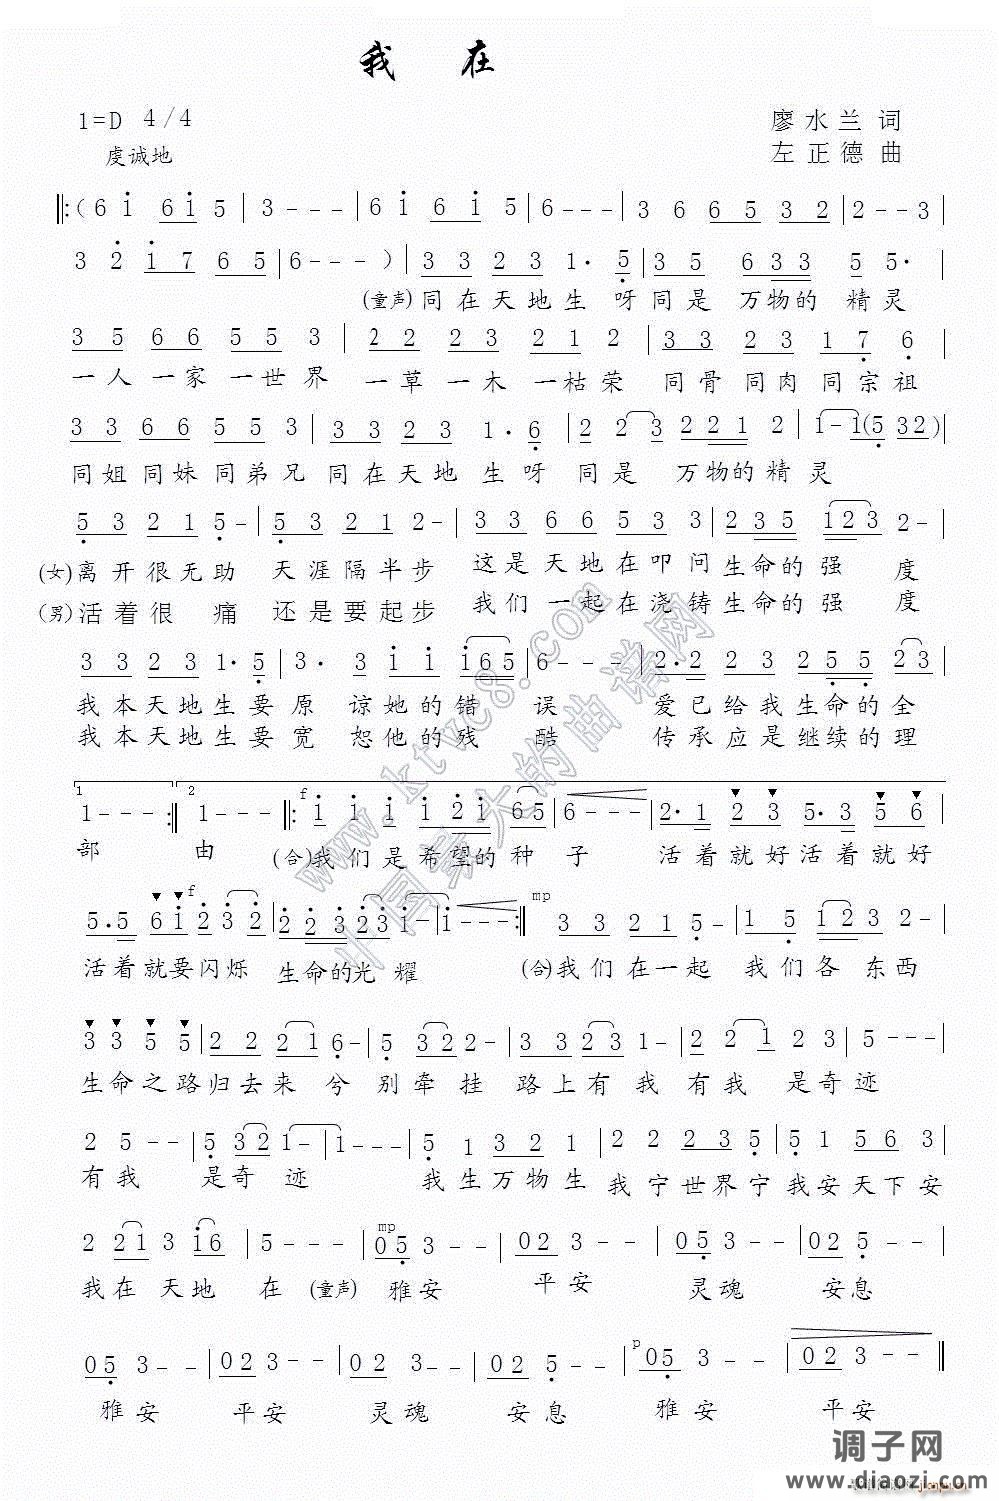 我 在
1=D 4/4
廖水兰 词
虔诚地
左正德 曲
‖:(6 i 6i 5 | 3 - - - | 6 i 6 i 5 | 6 - - - | 3 6 6 5 3 2 | 2 - - 3 |
3 2 i 7 6 5 | 6 - - - ) | 3 3 2 3 1· 5 | 3 5 6 3 3 5 5· |
(童声)同在天地生 呀同是 万物的 精灵
3 5 6 6 5 5 3 | 2 2 2 3 2 1 2 | 3 3 2 3 1 7 6 |
一人一家一世界 一草一木一枯荣 同骨同肉同宗祖
3 3 6 6 5 5 3 | 3 3 2 3 1·6 | 2 2 3 2 2 1 2 | 1-1(5 3 2) |
同姐同妹同弟兄 同在天地 生呀 同是 万物的精灵
5 3 2 1 5 - | 5 3 2 1 2 - | 3 3 6 6 5 3 3 | 2 3 3 1 2 3 2 - |
(女)离开很无助 天涯隔半步 这是天地在叩问生命的强 度
(男)活着很 痛 还是要起步 我们一起在浇铸生命的强 度
3 3 2 3 1·5 | 3· 3 i i i 6 5 | 6 - - | 2·2 2 3 2 5 5 2 3 |
我本天地生要原 谅她的错 误 爱已给我生命的全
我本天地生要宽 恕他的残 酷 传承应是继续的理
1 2 f
1 - - - :‖ 1 - - - ‖: i i i i 2 i 6 5 | 6 - - - | 2·1 2 3 5·3 5 6 |
部 由 (合)我们是希望的种 子 活着就好活着就好
f mp
5·5 6 i 2 3 2 | 2 2 3 2 3 i - | i - - - :‖ 3 3 2 1 5 - | 1 5 1 2 3 2 - |
活着就要闪烁 生命的光耀 (合)我们在一起 我们各东西
3 3 5 5 | 2 2 2 1 6 - | 5 3 2 2 - | 3 3 2 3 1 - | 2 2 1 2 3 | 5 2 5 |
生命之路归去来 兮 别牵挂 路上有我 有我 是奇迹
2 5 - - | 5 3 2 1 - | 1 - - - | 5 1 3 2 1 | 2 2 2 3 5 | 5 1 5 6 3 |
有我 是奇迹 我生万物生 我宁世界宁 我安天下安
mp
2 2 1 3 i 6 | 5 - - - | 0 5 3 - - | 0 2 3 - - | 0 5 3 - - | 0 2 5 - - |
我在 天地 在 (童声) 雅安 平安 灵魂 安息
p
0 5 3 - - | 0 2 3 - - | 0 5 3 - - | 0 2 5 - - | 0 5 3 - - | 0 2 3 - - ‖
雅安 平安 灵魂 安息 雅安 平安
www.ktvc8.com
中国最大的曲谱网
调子网
www.diaozi.com